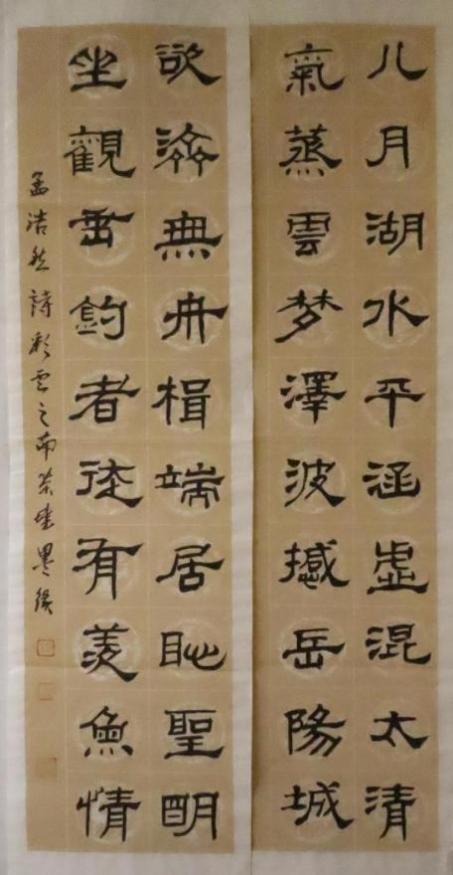 八月湖水平涵虛混太清
氣蒸雲梦澤波撼岳陽城
欲濟無舟楫端居恥聖明
坐觀垂釣者徒有羨魚情
孟浩然詩彩雲之南榮峰墨緣